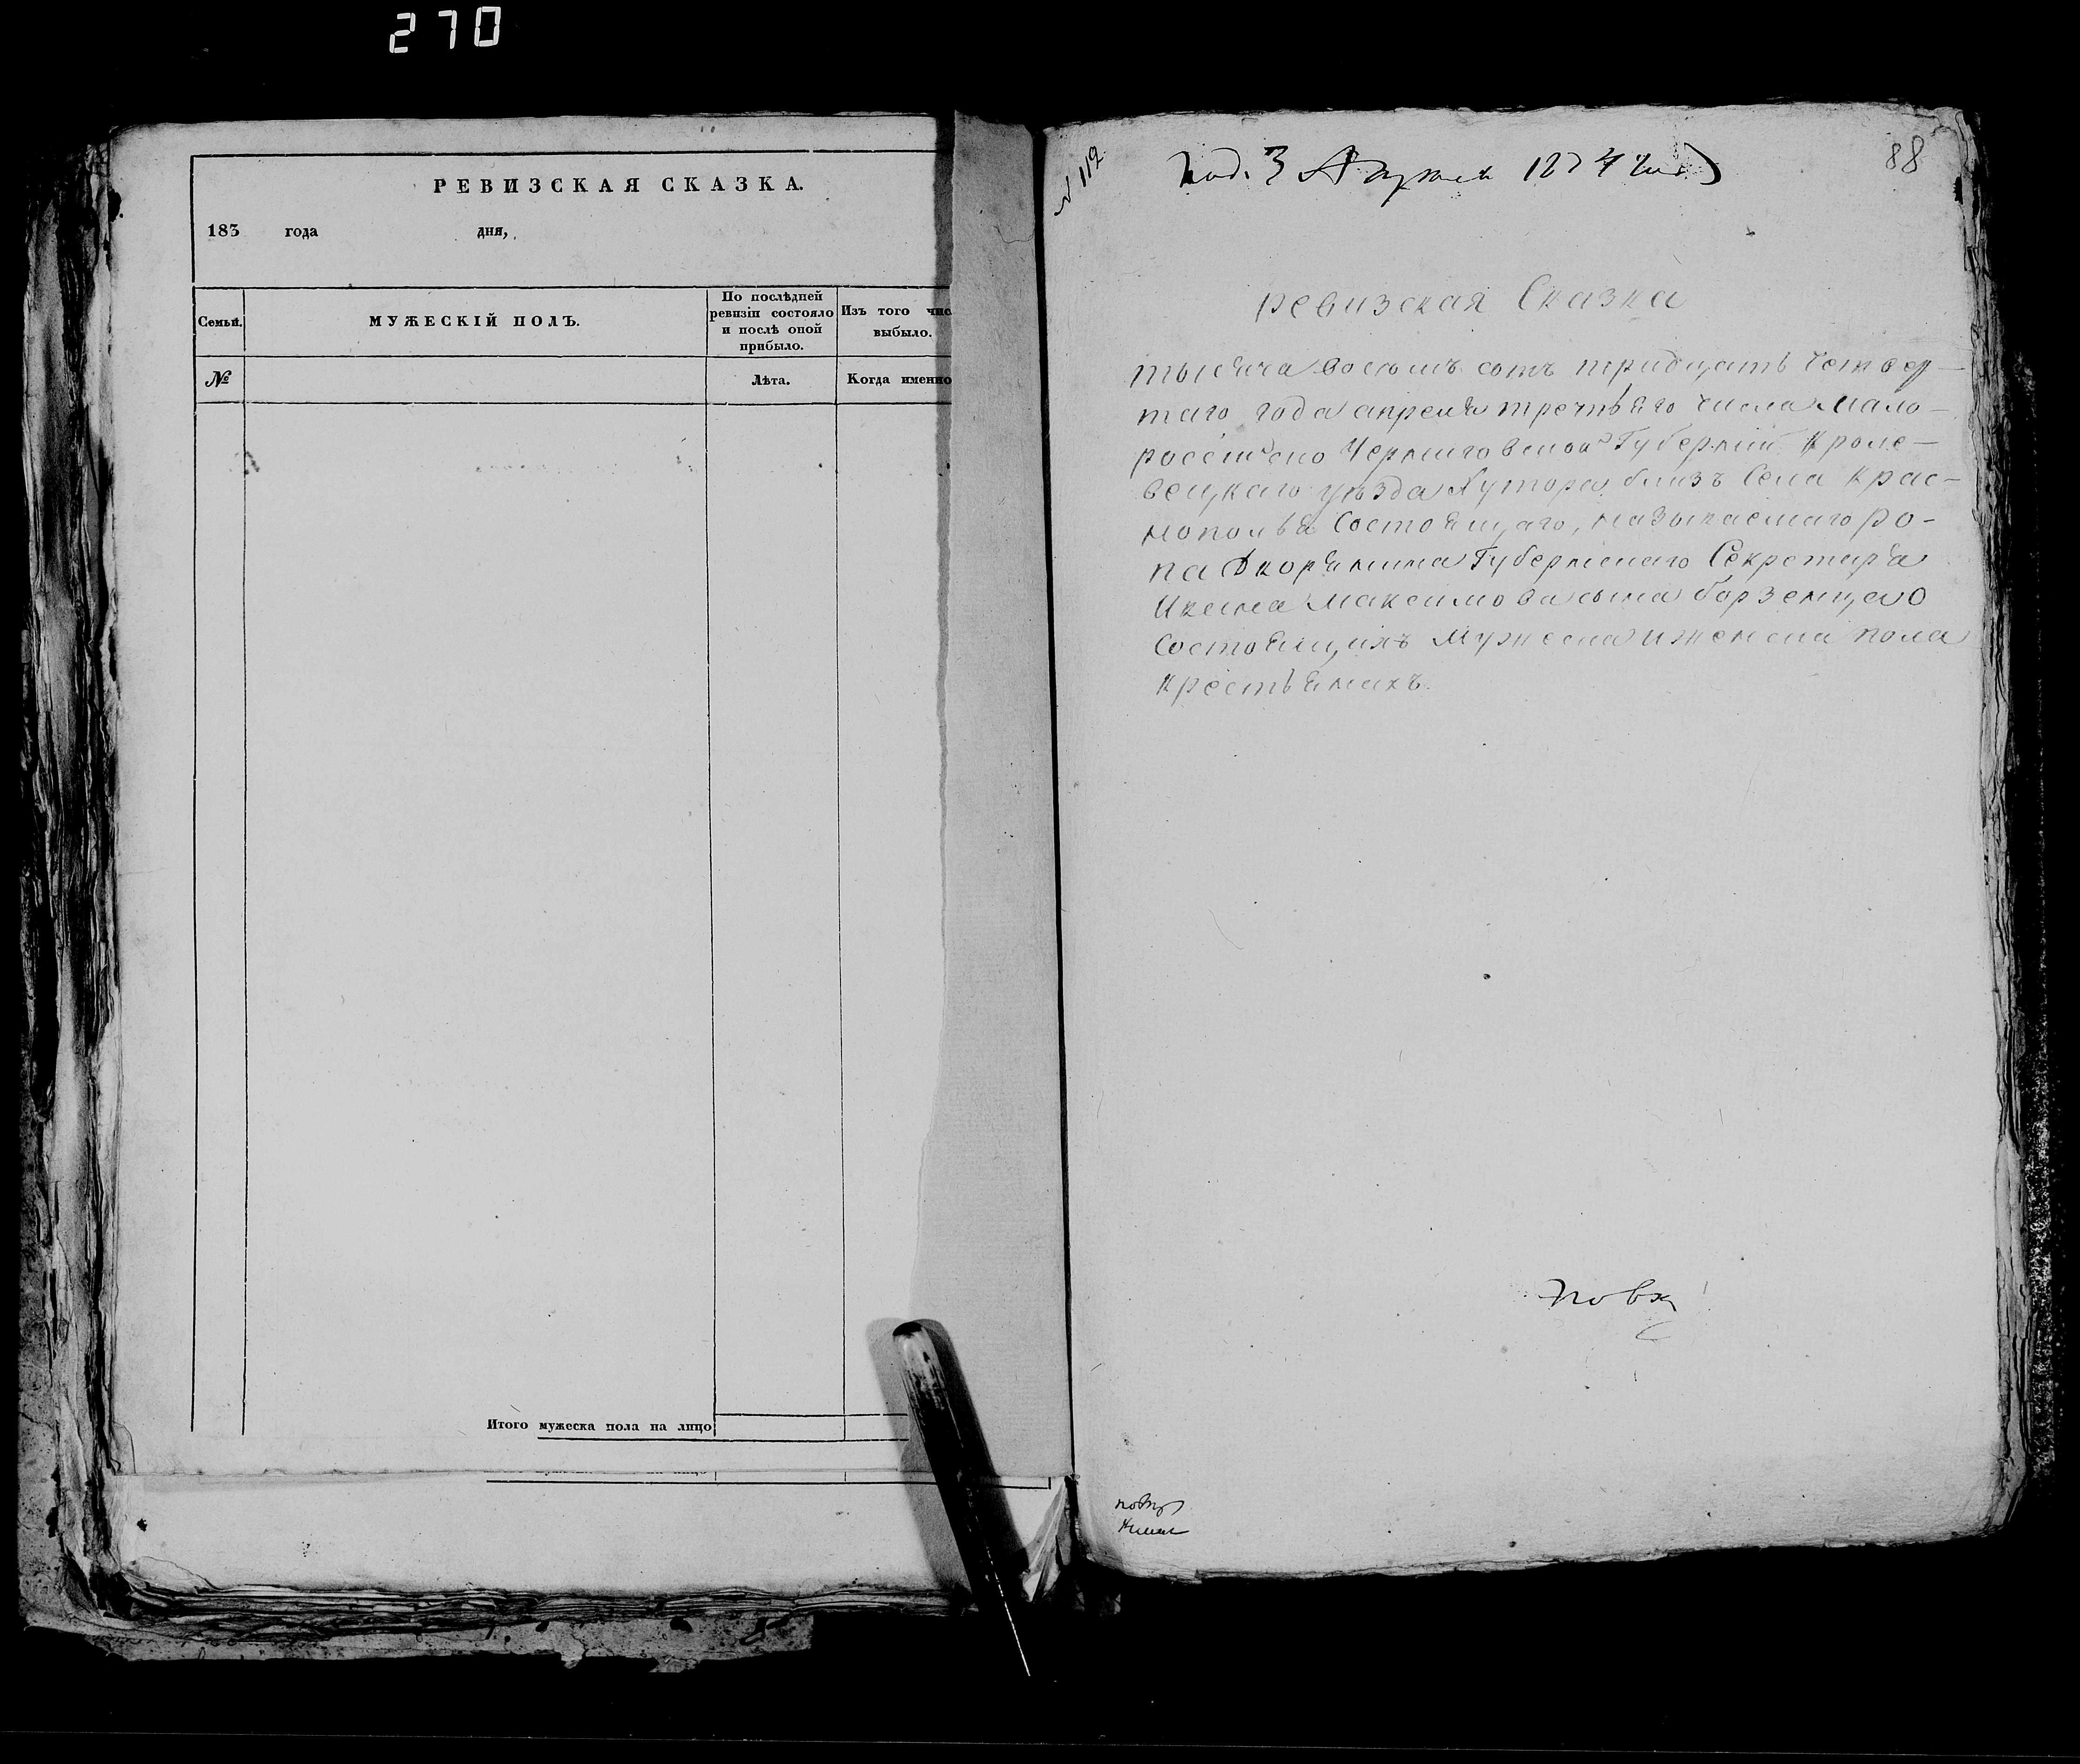 270
РЕВИЗСКАЯ СКАЗКА.
183 года дня,
Семьи.
МУЖЕСКІЙ ПОЛЪ.
По послѣдней
ревизіи состояло
и послѣ оной
прибыло.
Изъ того чис
выбыло.
№
Лѣта.
Когда именно
Итого мужеска пола на лицо
№ 112
под. 3 Апреля 1834 года
88
ревизская Сказка
тысяча восемъ сотъ тридцать четвер-
таго года апреля третьяго числа мало-
россійско Черниговской Губерніи Кроле-
вецкаго уѣзда Хутора близъ Села Крас-
нополья Состоящаго, называемаго ро-
па Дворянина Губернскаго Секретаря
Ивана Максимова сына борзенцаво
Состоящихъ Мужеска и женска пола
крестьянахъ.